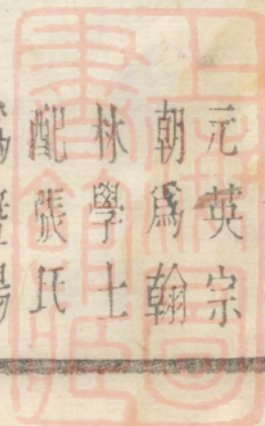 元英宗
朝爲翰
林學士
配張氏